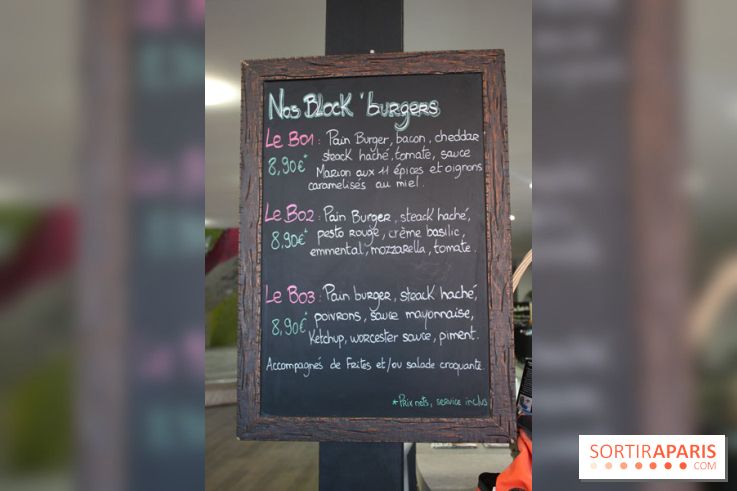 Nos Block'burgers
Le B01 : Pain Burger, bacon, cheddar
8,90€* steack haché, tomate, sauce
Marion aux 11 épices et oignons
caramelisés au miel.
Le B02 : Pain Burger, steack haché,
8,90€* pesto rouge, crème basilic,
emmental, mozzarella, tomate.
Le B03 : Pain burger, steack haché,
8,90€* poivrons, sauce mayonnaise,
Ketchup, worcester sauce, piment.
Accompagnés de Frites et/ou salade croquante
*Prix nets, service inclus
SORTIRAPARIS
.COM